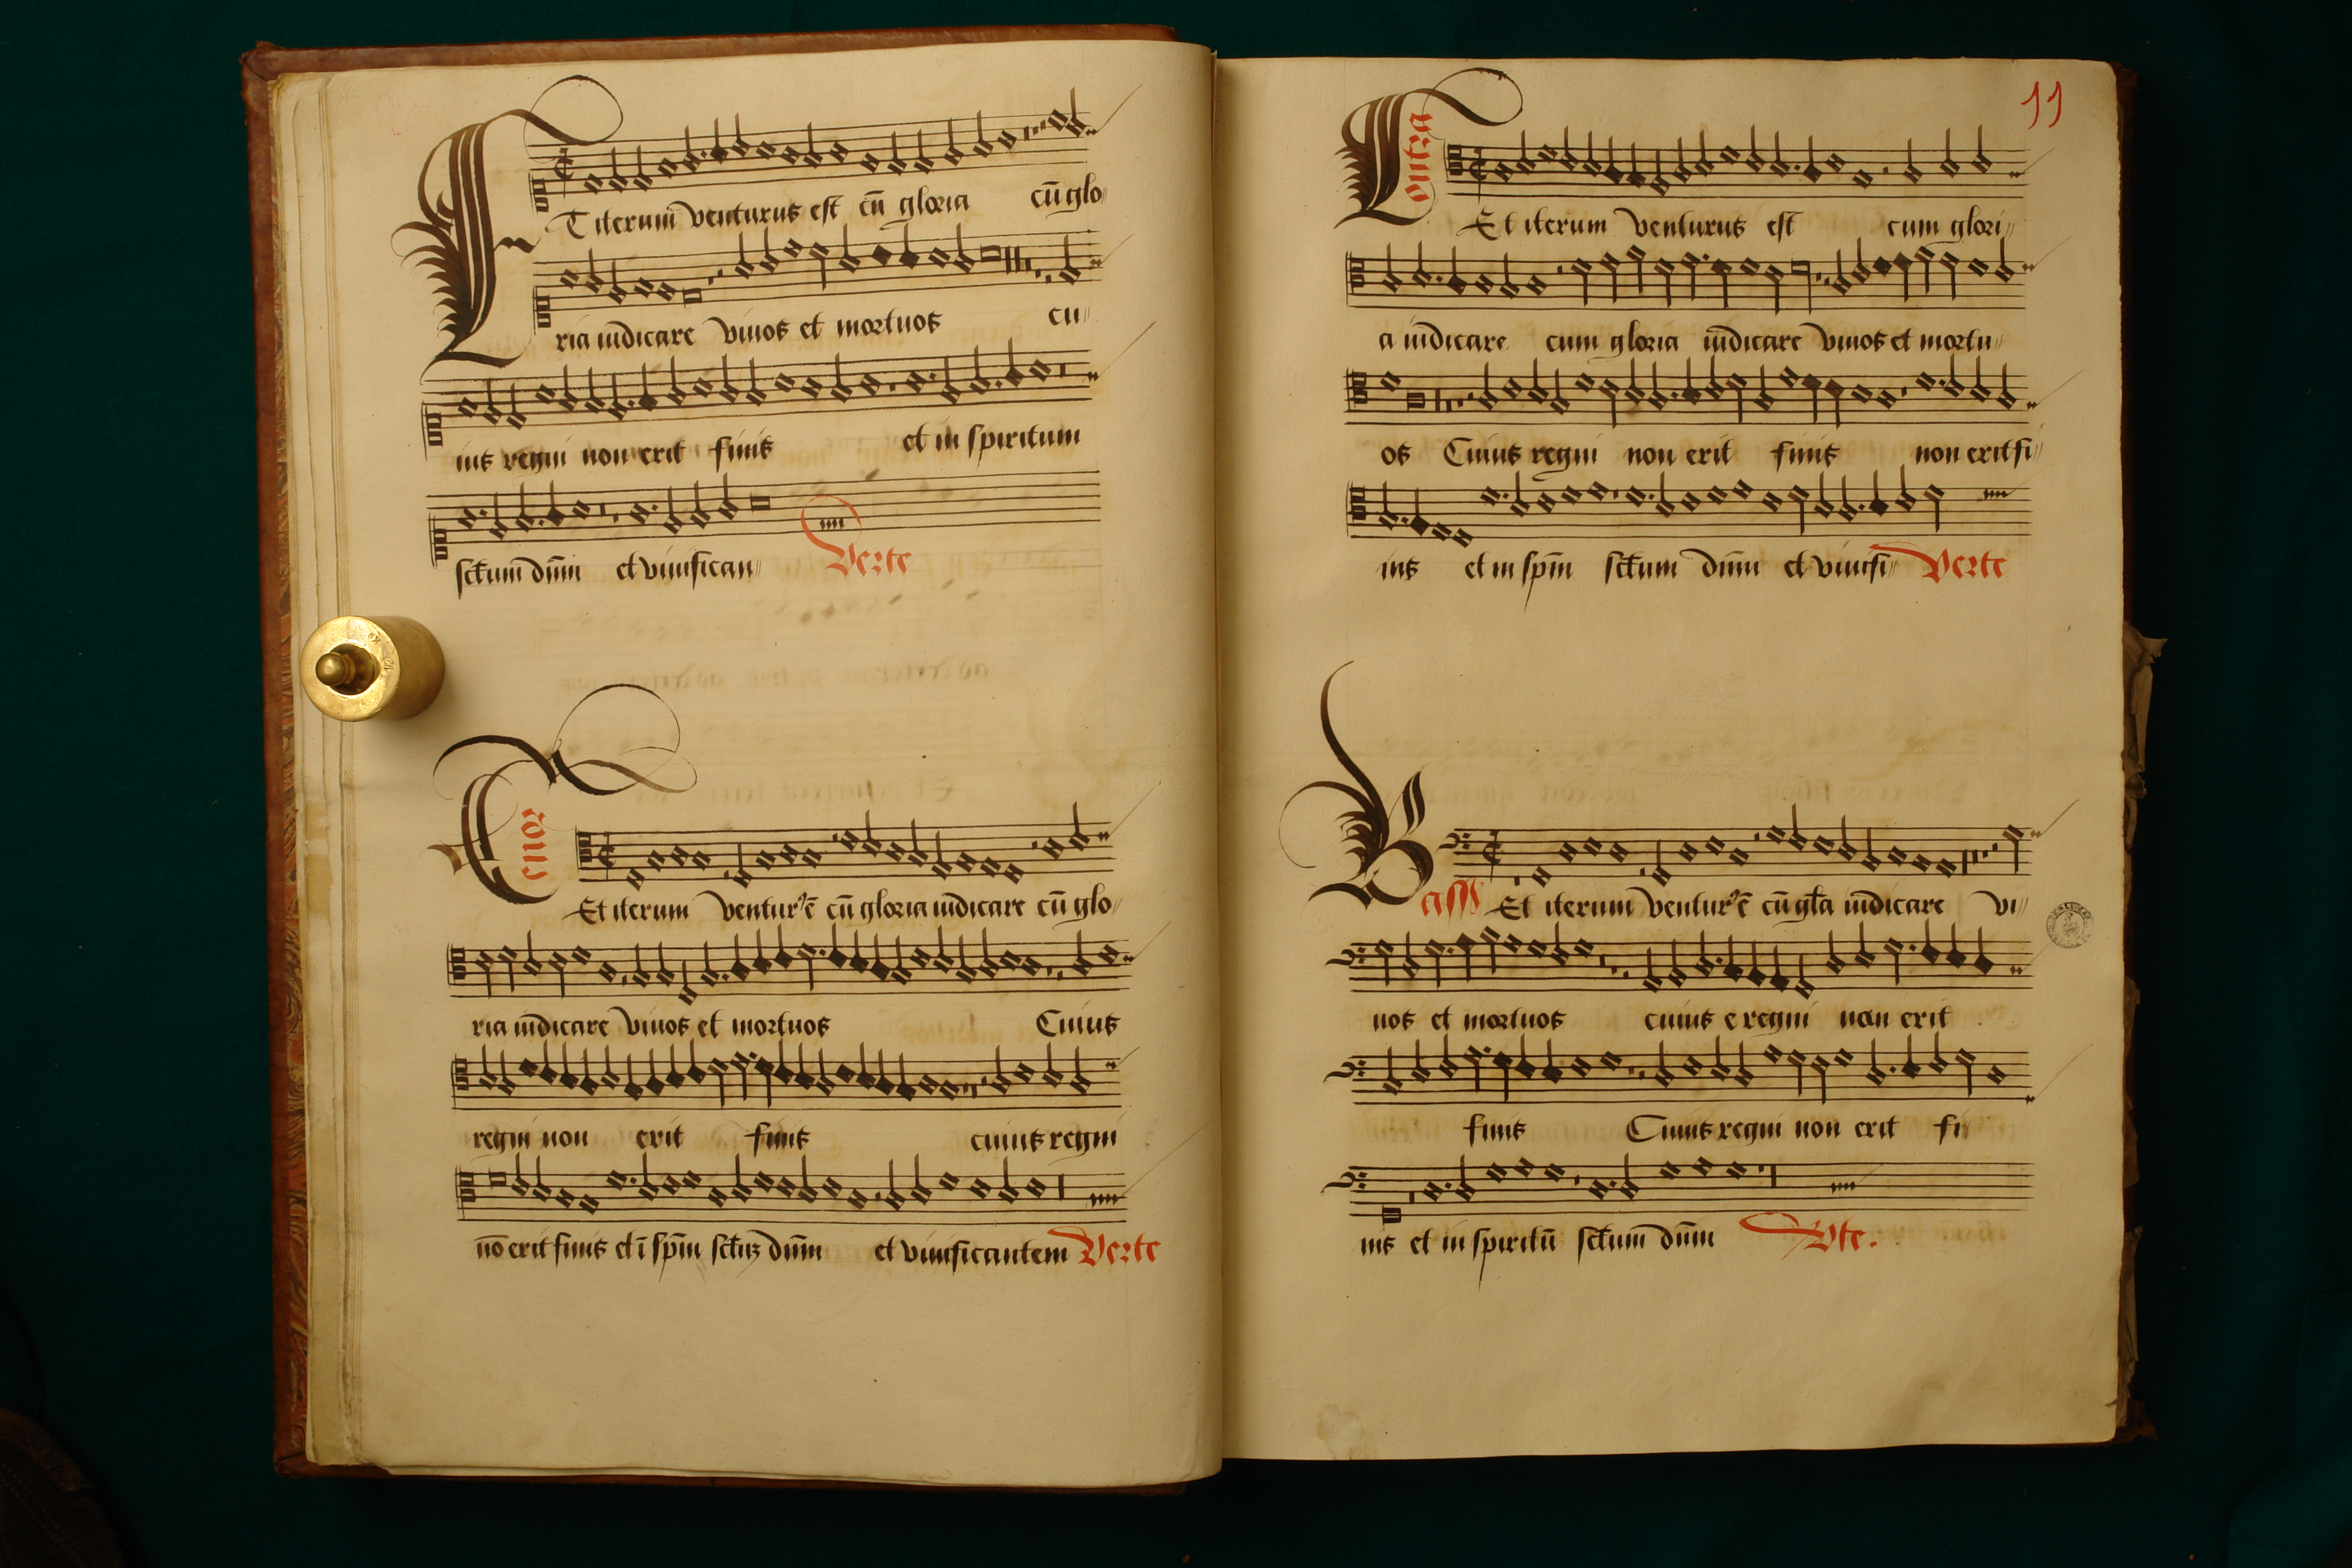 ET iterum venturus est cū gloria cū glo
ria iudicare vivos et mortuos cu
ius regni non erit finis et in spiritum
sctum dnm et vivifican
Verte
Tenor
Et iterum ventur' ē cū gloria iudicare cū glo
ria iudicare vivos et mortuos Cuius
regni non erit finis cuius regni
nō erit finis et ī spm sctuz dnm et vivificantem Verte
11
Contra
Et iterum venturus est cum glori
a iudicare cum gloria iudicare vivos et mortu
os Cuius regni non erit finis non erit fi
nis et in spm sctum dnm et vivifi Verte
Bass
Et iterum ventur' ē cū gla iudicare vi
vos et mortuos cuius e regni non erit
finis Cuius regni non erit fi
nis et in spiritū sctum dnm Vte.